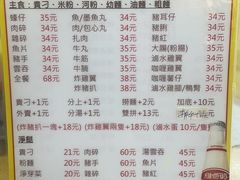 主食：貴刁·米粉·河粉·幼麵·油麵·粗麵
蠔仔 34元 魚/墨魚丸 34元 豬耳仔 34元
肉碎 34元 肉/包心丸 34元 豬脷 34元
雞翼 34元 扎肉 34元 豬紅 34元
魚片 34元 牛丸 34元 大腸(粉腸) 35元
豬手 34元 牛筋 35元 滷水雞翼 35元
牛腩 34元 炸雞翼 35元 咖喱薯仔 34元
全餐 68元 炸豬扒 38元 滷水雞腳/鴨腎 34元
(炸豬扒一塊+18元) (炸雞翼兩隻+18元) (滷水蛋 10元/隻)
貴刁+1元 上分+1元 撈麵+2元 加底+10元
外賣+1元 湯分+1元 雙拼+13元
淨 21元 肉碎 60元 湯雲吞 35元
粉麵 20元 豬手 60元 魚片 45元
淨芽菜 20元 雞翼 60元 豬紅 45元